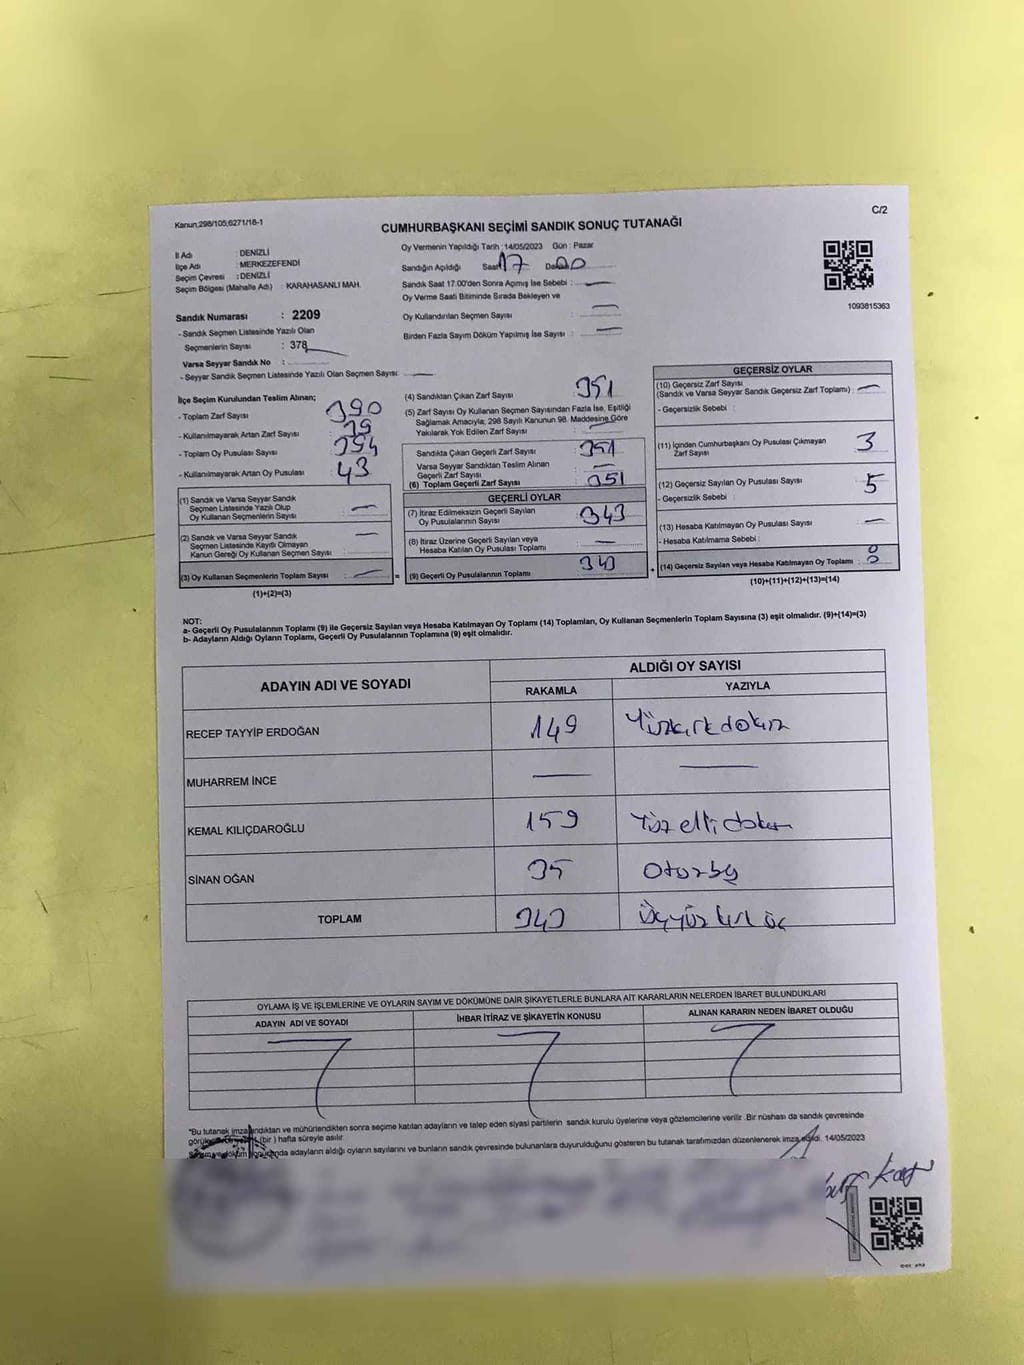 Kanun,298/105;6271/18-1
C/2
CUMHURBAŞKANI SEÇİMİ SANDIK SONUÇ TUTANAĞI
İl Adı : DENİZLİ
İlçe Adı : MERKEZEFENDİ
Seçim Çevresi : DENİZLİ
Seçim Bölgesi (Mahalle Adı) : KARAHASANLI MAH.
Oy Vermenin Yapıldığı Tarih : 14/05/2023 Gün : Pazar
Sandığın Açıldığı Saat 17 Dakika 00
Sandık Saat 17.00'den Sonra Açımış İse Sebebi :
Oy Verme Saati Bitiminde Sırada Bekleyen ve
Oy Kullandırılan Seçmen Sayısı :
Birden Fazla Sayım Döküm Yapılmış İse Sayısı :
1093815363
Sandık Numarası : 2209
- Sandık Seçmen Listesinde Yazılı Olan
Seçmenlerin Sayısı : 378
Varsa Seyyar Sandık No :
- Seyyar Sandık Seçmen Listesinde Yazılı Olan Seçmen Sayısı:
İlçe Seçim Kurulundan Teslim Alınan;
- Toplam Zarf Sayısı : 390
- Kullanılmayarak Artan Zarf Sayısı : 39
- Toplam Oy Pusulası Sayısı : 394
- Kullanılmayarak Artan Oy Pusulası : 43
(1) Sandık ve Varsa Seyyar Sandık
Seçmen Listesinde Yazılı Olup
Oy Kullanan Seçmenlerin Sayısı :
(2) Sandık ve Varsa Seyyar Sandık
Seçmen Listesinde Kayıtlı Olmayan
Kanun Gereği Oy Kullanan Seçmen Sayısı :
(3) Oy Kullanan Seçmenlerin Toplam Sayısı :
(1)+(2)=(3)
(4) Sandıktan Çıkan Zarf Sayısı : 351
(5) Zarf Sayısı Oy Kullanan Seçmen Sayısından Fazla İse, Eşitliği
Sağlamak Amacıyla, 298 Sayılı Kanunun 98. Maddesine Göre
Yakılarak Yok Edilen Zarf Sayısı :
Sandıkta Çıkan Geçerli Zarf Sayısı : 351
Varsa Seyyar Sandıktan Teslim Alınan
Geçerli Zarf Sayısı :
(6) Toplam Geçerli Zarf Sayısı : 351
GEÇERLİ OYLAR
(7) İtiraz Edilmeksizin Geçerli Sayılan
Oy Pusulalarının Sayısı : 343
(8) İtiraz Üzerine Geçerli Sayılan veya
Hesaba Katılan Oy Pusulası Toplamı :
(9) Geçerli Oy Pusulalarının Toplamı : 343
GEÇERSİZ OYLAR
(10) Geçersiz Zarf Sayısı
(Sandık ve Varsa Seyyar Sandık Geçersiz Zarf Toplamı) :
- Geçersizlik Sebebi :
(11) İçinden Cumhurbaşkanı Oy Pusulası Çıkmayan
Zarf Sayısı : 3
(12) Geçersiz Sayılan Oy Pusulası Sayısı : 5
- Geçersizlik Sebebi :
(13) Hesaba Katılmayan Oy Pusulası Sayısı :
- Hesaba Katılmama Sebebi :
(14) Geçersiz Sayılan veya Hesaba Katılmayan Oy Toplamı : 8
(10)+(11)+(12)+(13)=(14)
NOT:
a- Geçerli Oy Pusulalarının Toplamı (9) ile Geçersiz Sayılan veya Hesaba Katılmayan Oy Toplamı (14) Toplamları, Oy Kullanan Seçmenlerin Toplam Sayısına (3) eşit olmalıdır. (9)+(14)=(3)
b- Adayların Aldığı Oyların Toplamı, Geçerli Oy Pusulalarının Toplamına (9) eşit olmelidir.
ADAYIN ADI VE SOYADI ALDIĞI OY SAYISI
RAKAMLA YAZIYLA
RECEP TAYYİP ERDOĞAN 149 Yüzkırkdokuz
MUHARREM İNCE
KEMAL KILIÇDAROĞLU 159 Yüz elli dokuz
SİNAN OĞAN 35 Otuzbeş
TOPLAM 343 Üçyüz kırk üç
OYLAMA İŞ VE İŞLEMLERİNE VE OYLARIN SAYIM VE DÖKÜMÜNE DAİR ŞİKAYETLERLE BUNLARA AİT KARARLARIN NELERDEN İBARET BULUNDUKLARI
ADAYIN ADI VE SOYADI İHBAR İTİRAZ VE ŞİKAYETİN KONUSU ALINAN KARARIN NEDEN İBARET OLDUĞU
*Bu tutanak imzalandıktan ve mühürlendikten sonra seçime katılan adayların ve talep eden siyasi partilerin sandık kurulu üyelerine veya gözlemcilerine verilir .Bir nüshası da sandık çevresinde
(bir ) hafta süreyle asılır.
adayların aldığı oyların sayılarını ve bunların sandık çevresinde bulunanlara duyurulduğunu gösteren bu tutanak tarafımızdan düzenlenerek imza edildi. 14/05/2023